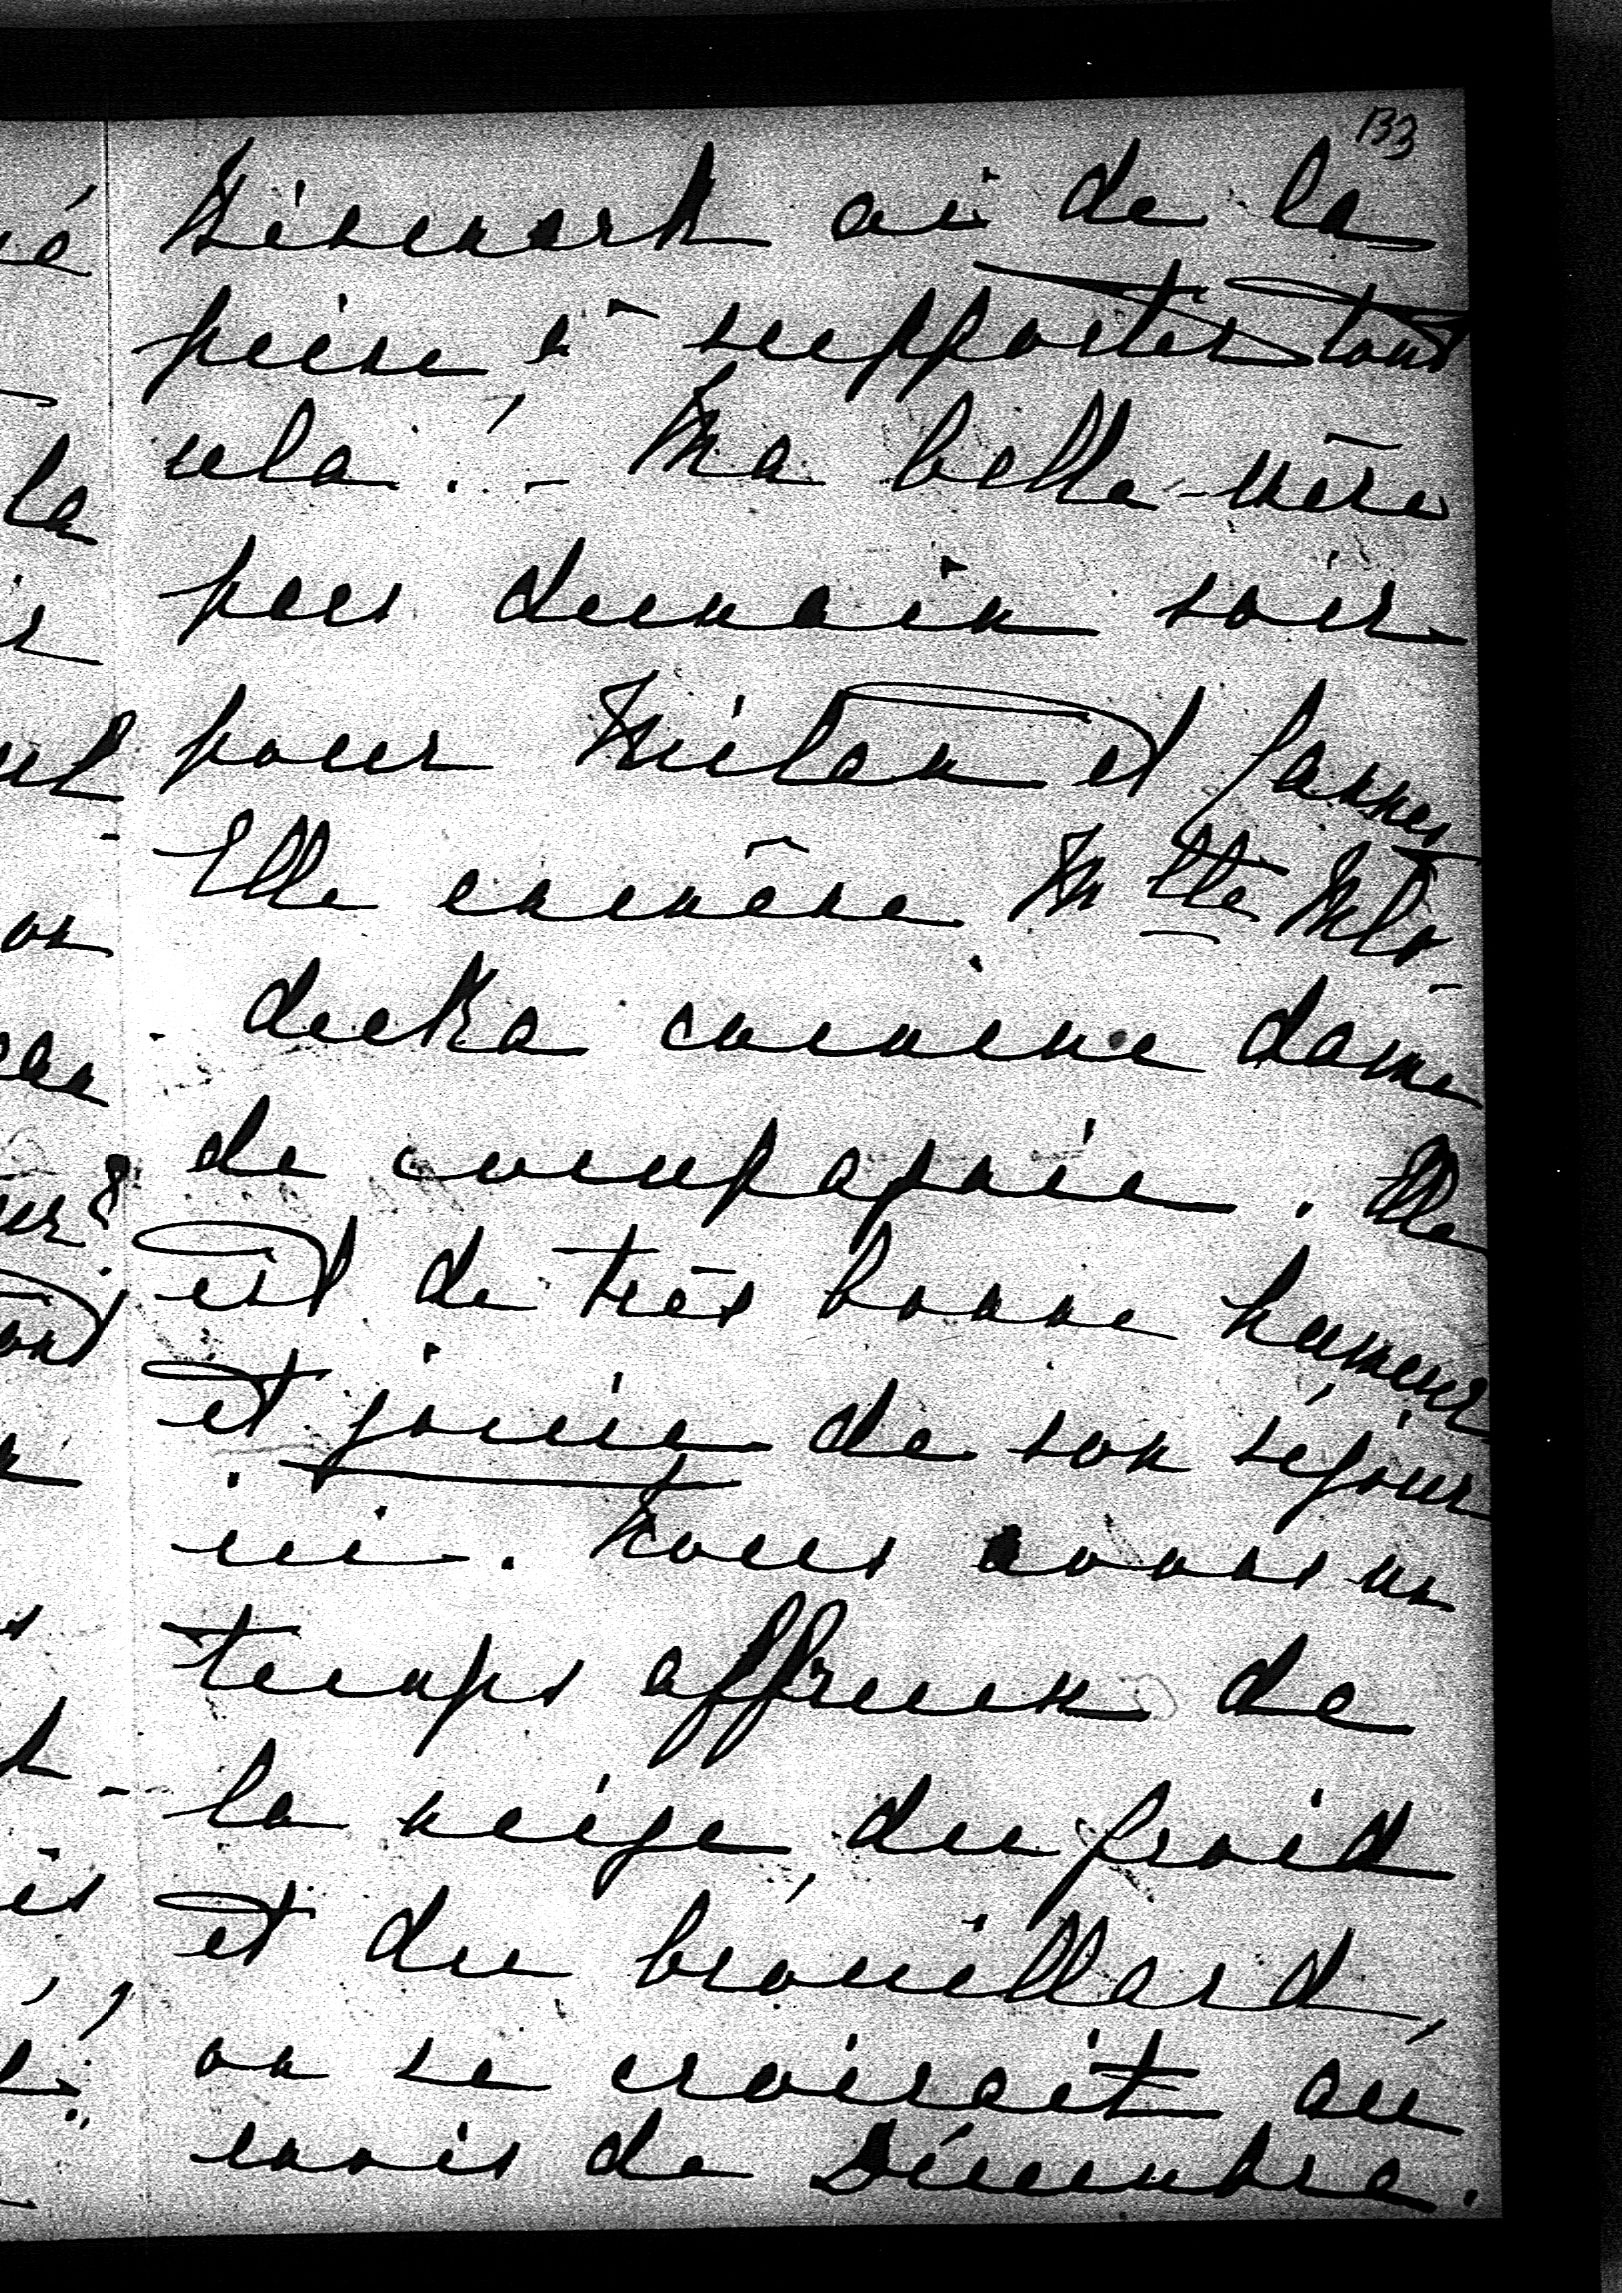 133
Bismark ai de la
peine à supporter tout
cela! - Ma belle-mère
pars demain soir
pour Milan et Cannes
Elle emmène M lle Mlo-
decka comme dame
de compagnie. Elle
est de très bonne humeur
et jouie de son séjour
ici. Nous avons un
temps affreux de
la neige, du froid
et du brouillard,
on se croirait au
mois de Décembre.